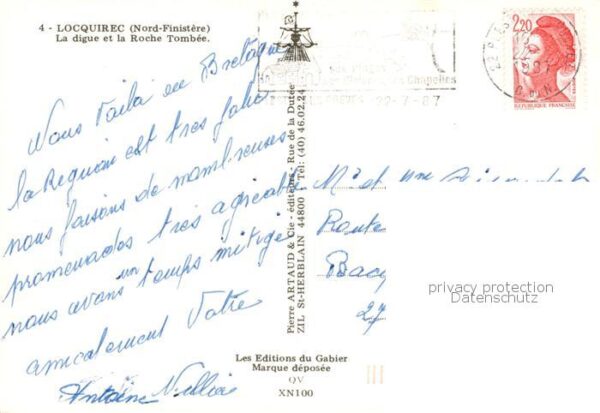 4 - LOCQUIREC (Nord-Finistère)
La digue et la Roche Tombée.
Vous Voilà en Bretagne
la Region est tres jolie
nous faisons de nombreuses
promenades tres agreable
nous avons un temps mitigé
amicalement Votre
Antoine
Pierre ARTAUD & Cie - éditeurs - Rue de la Dutée
ZIL St-HERBLAIN 44800 - Tél: (40) 46.02.24
Chapelles
22-7-87
2,20
REPUBLIQUE FRANÇAISE
Mr et
Route
Bacy
27
privacy protection
Datenschutz
Les Editions du Gabier
Marque déposée
QV
XN100